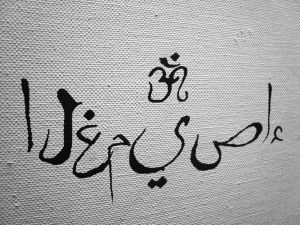 ॐ
ا ل غ م ي ص ا ء